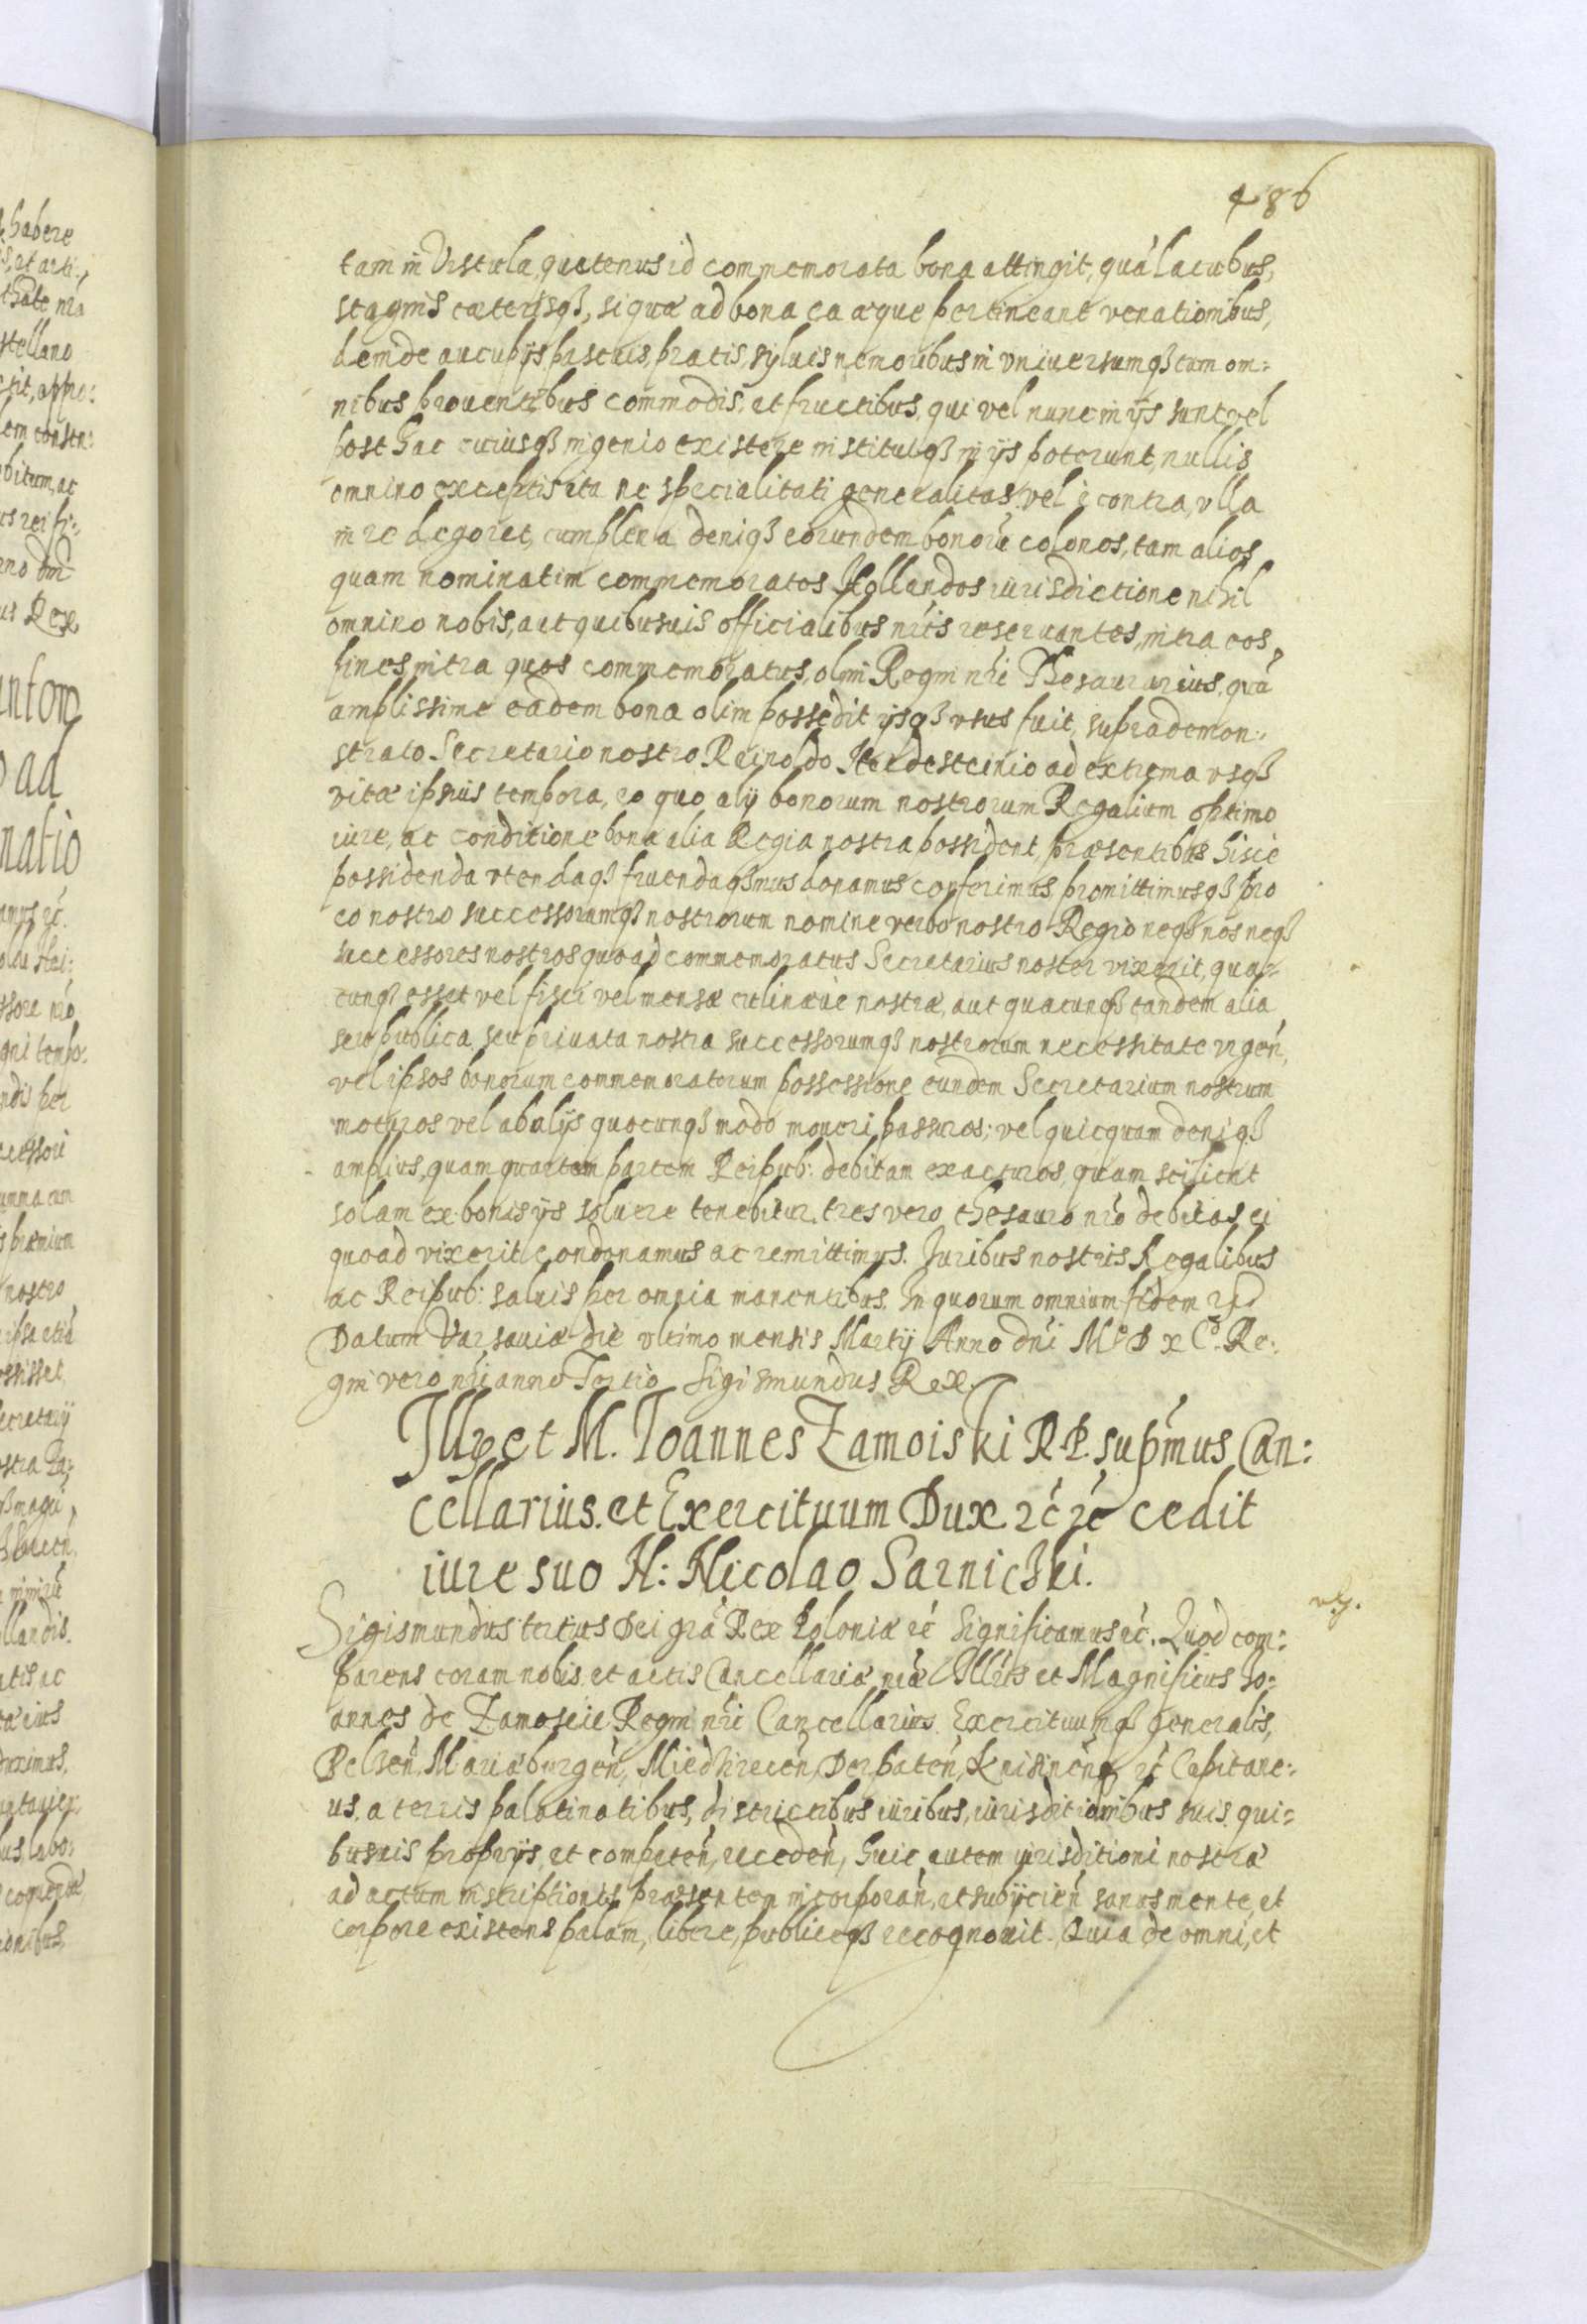 486
tam in Vistula, quatenus id commemorata bona attingit, quà lacubus,
stagnis cæterisqꝫ, siqua ad bona ea æque pertineant venationibus,
deinde aucupijs pascuis, pratis, syluis nemoribus in vniuersumqꝫ cum om:
nibus prouentibus commodis et fructibus, qui vel nunc in ijs sunt vel
post hac cuiusqꝫ ingenio existere institutqꝫ in ijs poterunt, nullis
omnino exceptis ita ne specialitati generalitas, vel è contra, vlla
in re degoret, cum plena deniqꝫ eorundem bonorũ colonos, tam alios
quam nominatim commemoratos Hollandos iurisdictione nihil
omnino nobis, aut quibusuis officialibus nr̃is reseruantes, intra eos
fines, intra quos commemoratus, olim Regni nr̃i Thesaurarius, quã
amplissime eadem bona olim possedit ijsqꝫ vsus fuit, suprademon:
strato Secretario nostro Reinoldo Heidesteinio ad extrema vsqꝫ
vitæ ipsius tempora, eo quo alij bonorum nostrorum Regalium optimo
iure, ac conditione bona alia Regia nostra possident, præsentibus hisce
possidenda vtendaqꝫ fruendaqꝫ nus donamus conferimus promittimusqꝫ pro
eo nostro successorumqꝫ nostrorum nomine verbo nostro Regio neqꝫ nos neqꝫ
successores nostros quoad commemoratus Secretarius noster vixerit, qua:
cunqꝫ esset vel fisci vel mensæ culinæue nostræ, aut quacunqꝫ tandem alia
seu publica seu priuata nostra successorumqꝫ nostrorum necessitate vrgeñ,
vel ipsos bonorum commemoratorum possessione eundem Secretarium nostrum
moturos vel ab alijs quocunqꝫ modo moueri passuros; vel quicquam deniqꝫ
amplius, quam quartam partem Reipub: debitam exacturos, quam scilicet
solam ex bonis ijs soluere tenebitur, tres vero thesauro nr̃o debitas ei
quoad vixerit condonamus ac remittimus. Iuribus nostris Regalibus
ac Reipub: saluis per omnia manentibus. In quorum omnium fidem
Datum Varsauiæ die vltimo mensis Martij Anno dñi M° D x C°. Re:
gni vero nr̃i anno Tertio Sigismundus Rex.
Illr̃ et M. Ioannes Zamoiski R.P. supr̃mus Can:
cellarius. et Exercituum Dux ꝛc̃ ꝛc̃ cedit
iure suo N: Nicolao Sarnicꝫki.
Sigismundus tertius Dei grã Rex Poloniæ ꝛc̃ Significamus ꝛc̃. Quod com:
parens coram nobis et actis Cancellariæ nr̃æ Illr̃is et Magnificus Io:
annes de Zamoscie Regni nr̃i Cancellarius Exercituumqꝫ generalis,
Belseñ, Mariæburgeñ, Miedhireceñ, Derpateñ, Knisineñqꝫ ꝛc̃ Capitane:
us, a terris palatinatibus, districtibus iuribus, iurisditionibus suis qui:
busuis proprijs et competeñ, recedeñ, huic autem iurisditioni nostræ
ad actum inscriptionis præsentem incorporañ, et subijcieñ sanus mente, et
corpore existens palam, libere, publiceqꝫ recognouit. Quia de omni, et